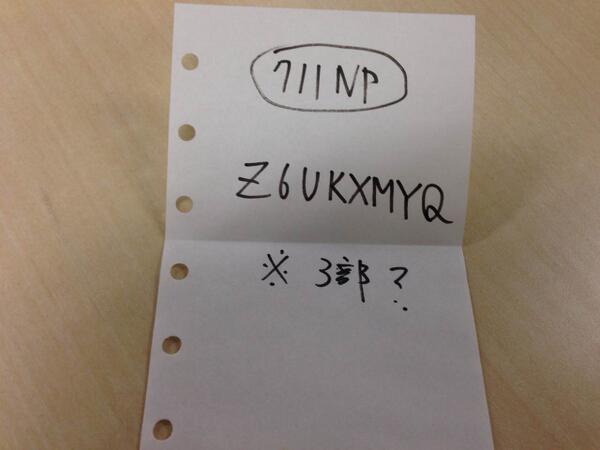 711NP
Z6UKXMYQ
※ 3部?